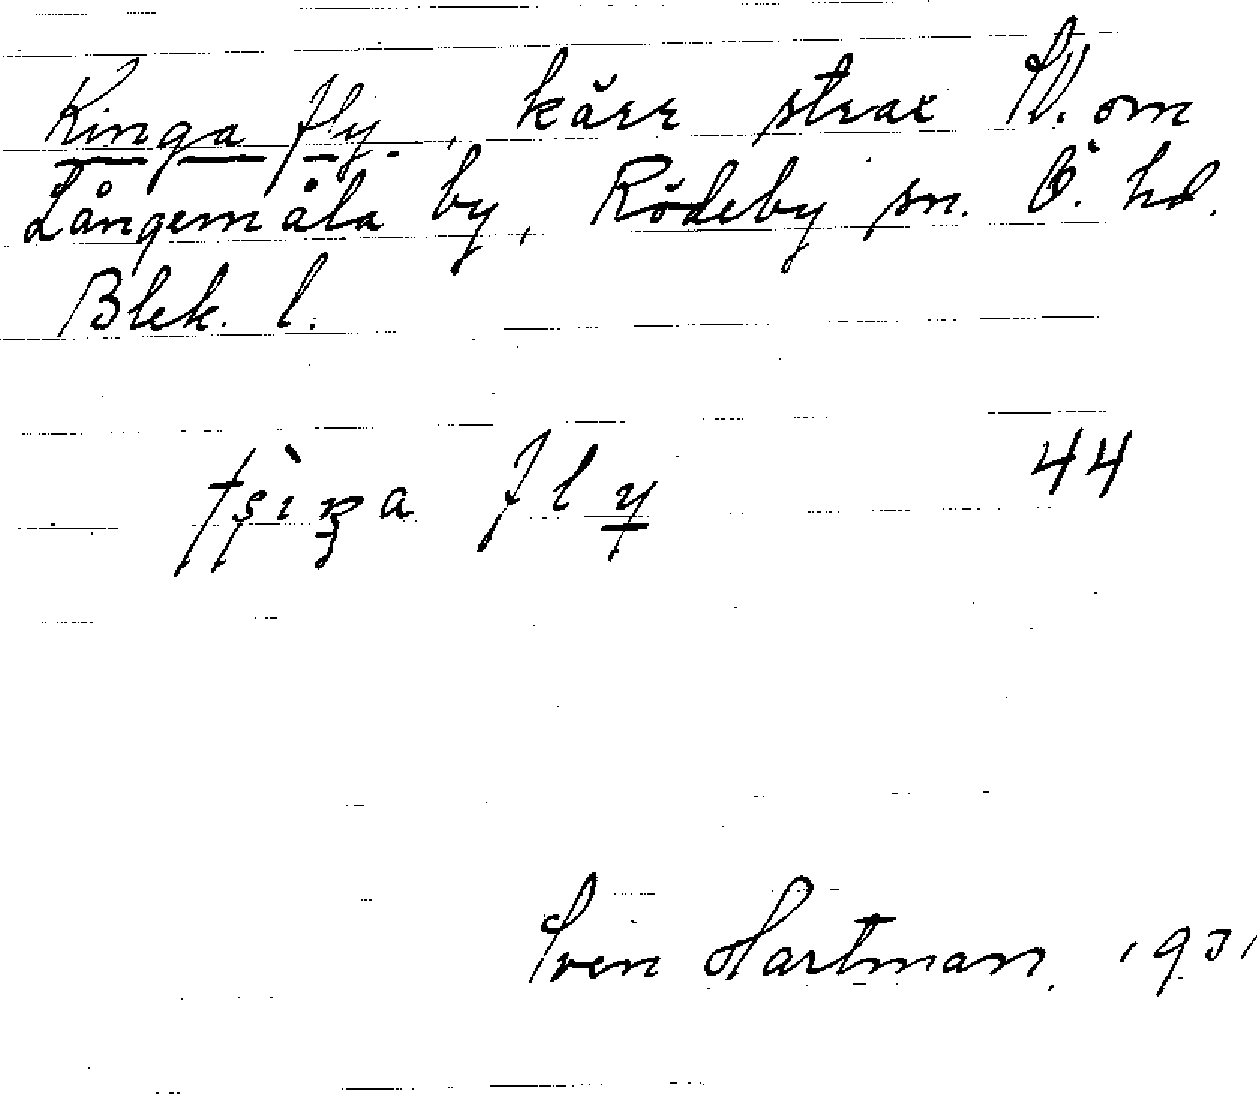 Kinga fly., kärr strax N. om
Långemåla by, Rödeby sn. Ö. hd.
Blek. l.
fly 44
Sven Hartman. 1931